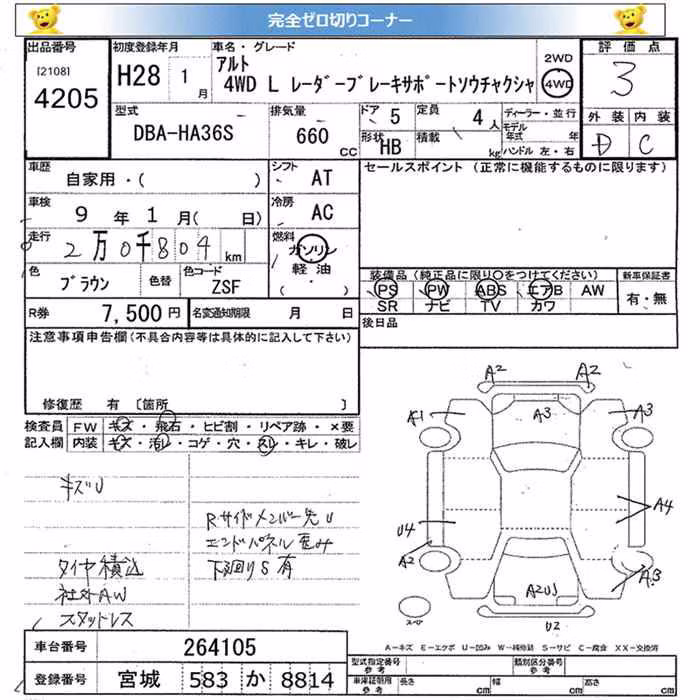 完全ゼロ切りコーナー
出品番号 初度登録年月 車名・グレード 評価点
[2108] 4205 H28 1月 アルト 2WD 3
4WD L レーダーブレーキサポートソウチャクシャ 4WD
型式 排気量 ドア 5 定員 4人 ディーラー・並行 外装 内装
DBA-HA36S 660 CC 形状 HB 積載 kg モデル年式 年 D C
ハンドル 左・右
車歴 自家用・( ) シフト AT セールスポイント (正常に機能するものに限ります)
車検 9年 1月( 日) 冷房 AC
走行 2万0千804 km 燃料 ガソリン
軽油
( ・ )
色 ブラウン 色替 色コード ZSF
装備品(純正品に限り○をつけてください) 新車保証書
PS PW ABS エアB AW 有・無
SR ナビ TV カワ
R券 7,500円 名変通知期限 月 日 後日品
注意事項申告欄(不具合内容等は具体的に記入して下さい)
修復歴 有 [箇所 ]
検査員 FW キズ・飛石・ヒビ割・リペア跡・×要
記入欄 内装 キズ・汚レ・コゲ・穴・スレ・キレ・破レ
キズU
Rサイドメンバー先U
エンドパネル歪み
タイヤ積込 下回りS有
社外AW
スタッドレス
A2 A2
A1 A3 A3
U4 A4
A2 A3
A2US
スペア U2
A-キズ E-エクボ U-凹み W-補修跡 S-サビ C-腐食 XX-交換済
車台番号 264105
型式指定番号 参考 類別区分番号 参考
登録番号 宮城 583 か 8814
車庫証明用 参考 長さ cm 幅 cm 高さ cm